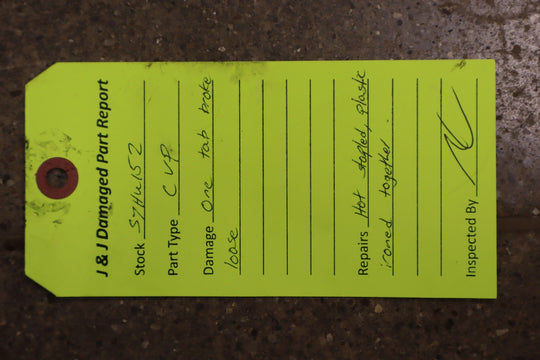 J & J Damaged Part Report
Stock
Part Type CVP
Damage One tab broke
loose
Repairs Hot stapled, plastic
ironed together.
Inspected By